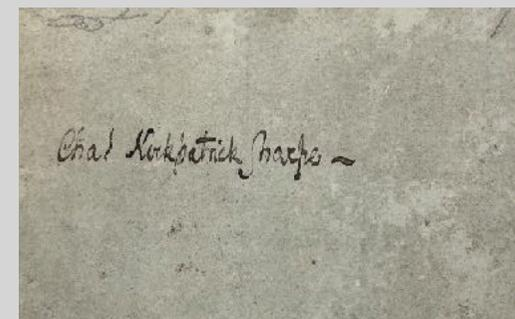 Chas Kirkpatrick Sharpe ~